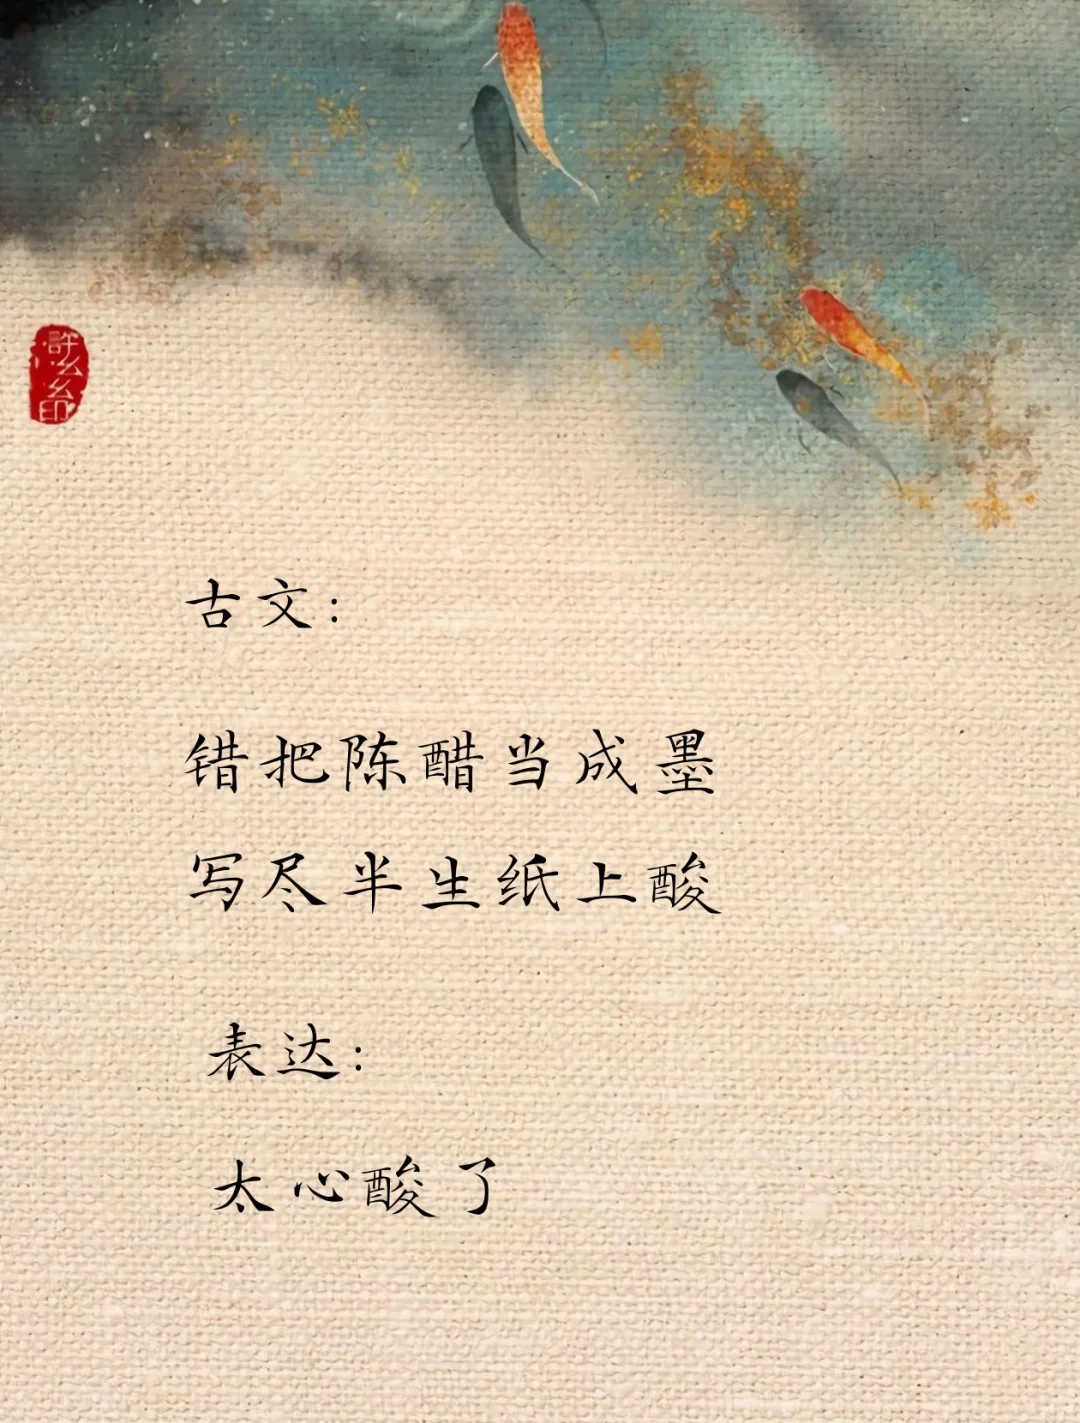 古文：
错把陈醋当成墨
写尽半生纸上酸
表达：
太心酸了